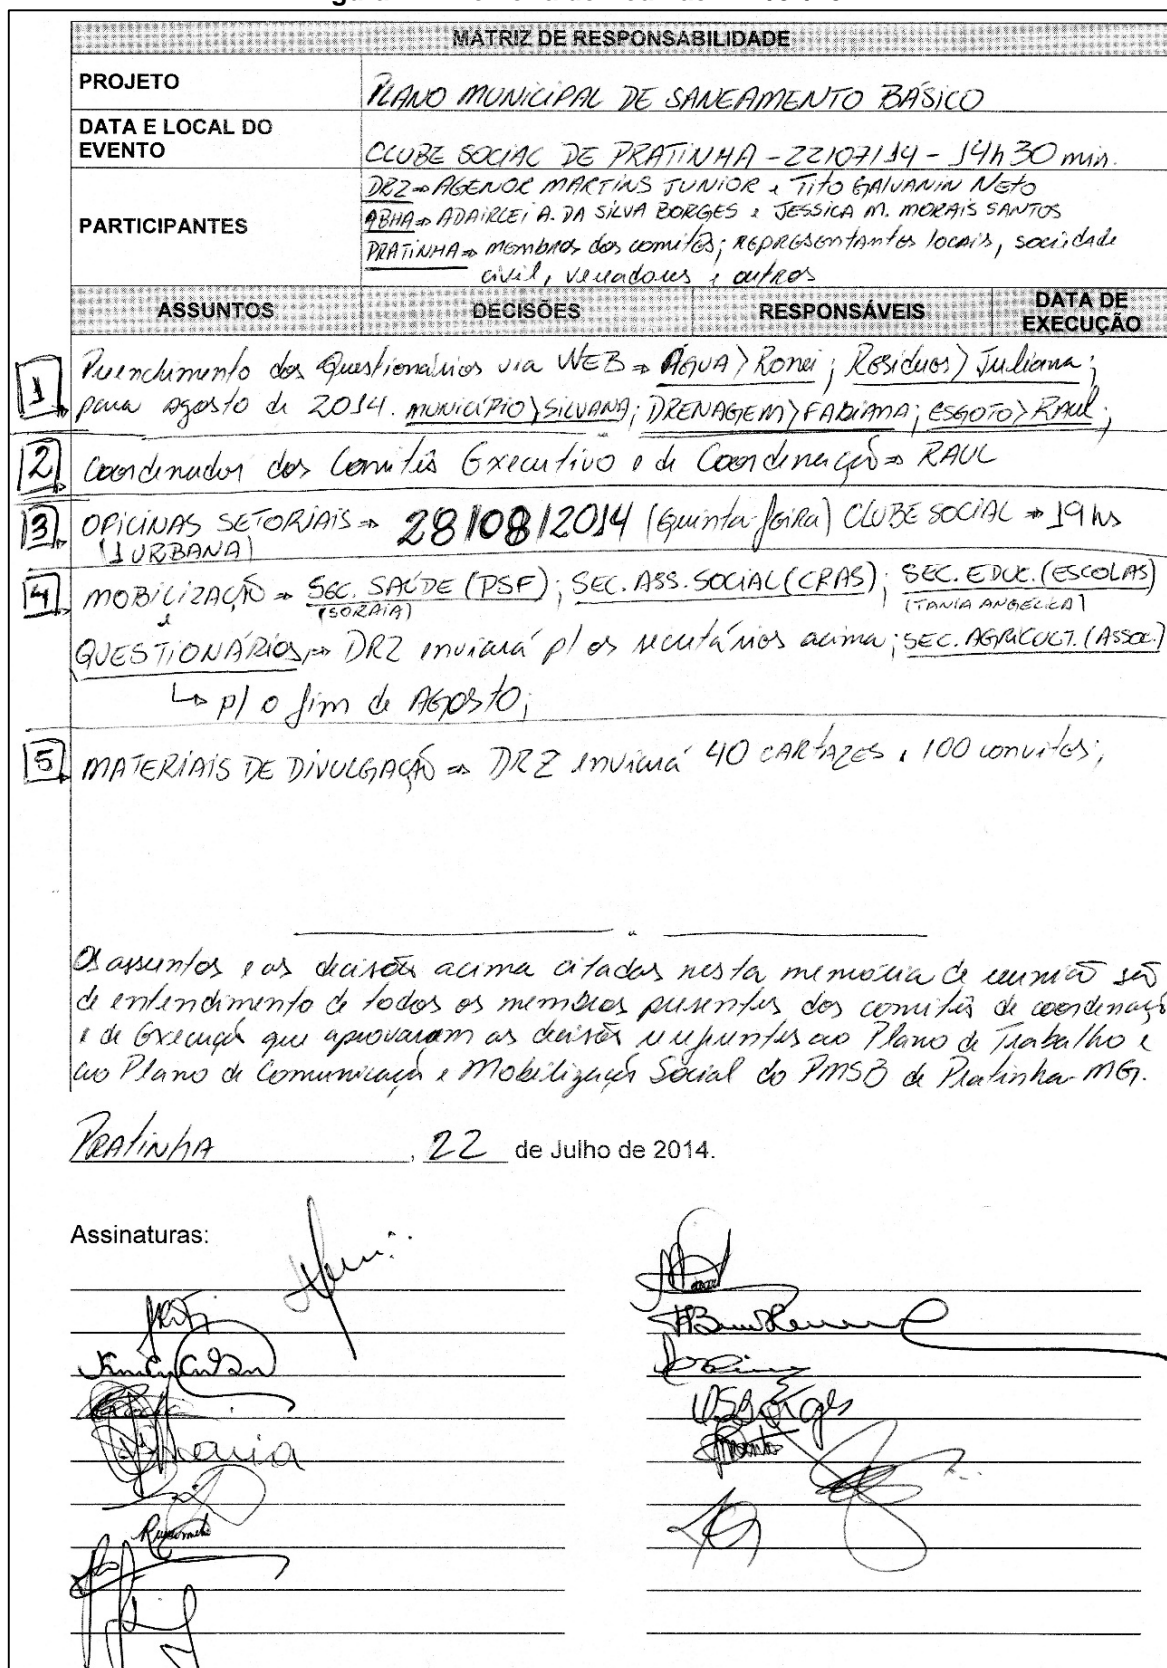 MATRIZ DE RESPONSABILIDADE
PROJETO
PLANO MUNICIPAL DE SANEAMENTO BÁSICO
DATA E LOCAL DO
EVENTO
CLUBE SOCIAL DE PRATINHA - 22/07/14 - 14h30 min.
PARTICIPANTES
DRZ ⇒ AGENOR MARTINS JUNIOR e TITO GALVANIN NETO
ABHA ⇒ ADAIRLEI A. DA SILVA BORGES e JESSICA M. MORAIS SANTOS
PRATINHA ⇒ membros dos comitês; representantes locais, sociedade
civil, vereadores e outros
ASSUNTOS DECISÕES RESPONSÁVEIS DATA DE
EXECUÇÃO
1 Preenchimento dos Questionários via WEB ⇒ ÁGUA > Ronei; Resíduos > Juliana;
para agosto de 2014. MUNICÍPIO > SILVANA; DRENAGEM > FABIANA; ESGOTO > RAUL;
2 Coordenador dos Comitês Executivo e de Coordenação ⇒ RAUL
3 OFICINAS SETORIAIS ⇒ 28/08/2014 (Quinta-feira) CLUBE SOCIAL ⇒ 19 hs
(1 URBANA)
4 MOBILIZAÇÃO ⇒ SEC. SAÚDE (PSF); SEC. ASS. SOCIAL (CRAS); SEC. EDUC. (ESCOLAS)
e (SORAIA) (TANIA ANGELICA)
QUESTIONÁRIOS ⇒ DRZ enviará p/ os secretários acima; SEC. AGRICULT. (ASSOC.)
↳ p/ o fim de Agosto;
5 MATERIAIS DE DIVULGAÇÃO ⇒ DRZ enviará 40 CARTAZES e 100 convites;
Os assuntos e as decisões acima citadas nesta memória de reunião são
de entendimento de todos os membros presentes dos comitês de coordenação
e de Execução que aprovaram as decisões referentes ao Plano de Trabalho e
ao Plano de Comunicação e Mobilização Social do PMSB de Pratinha-MG.
PRATINHA, 22 de Julho de 2014.
Assinaturas: